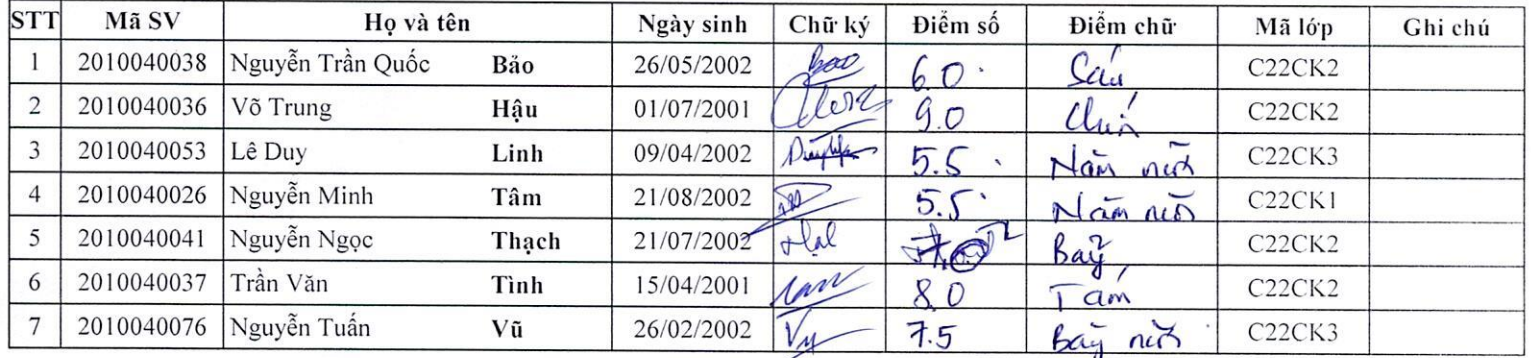 STT Mã SV Họ và tên Ngày sinh Chữ ký Điểm số Điểm chữ Mã lớp Ghi chú
1 2010040038 Nguyễn Trần Quốc Bảo 26/05/2002 Bao 6.0 Sáu C22CK2
2 2010040036 Võ Trung Hậu 01/07/2001 9.0 Chín C22CK2
3 2010040053 Lê Duy Linh 09/04/2002 5.5 Năm rưỡi C22CK3
4 2010040026 Nguyễn Minh Tâm 21/08/2002 5.5 Năm rưỡi C22CK1
5 2010040041 Nguyễn Ngọc Thạch 21/07/2002 Bảy C22CK2
6 2010040037 Trần Văn Tình 15/04/2001 8.0 Tám C22CK2
7 2010040076 Nguyễn Tuấn Vũ 26/02/2002 Vy 7.5 Bảy rưỡi C22CK3